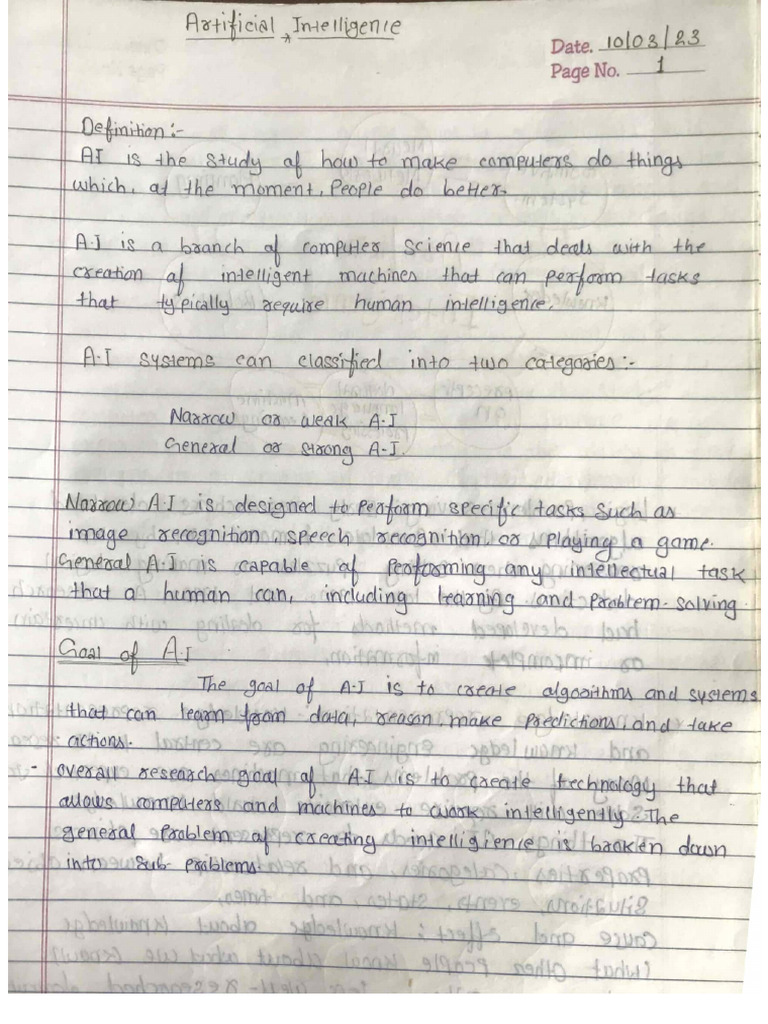 Artificial Intelligenie
Date. 10/03/23
Page No. 1
Definition:-
AI is the study of how to make computers do things
which, at the moment, People do better.
A.I is a branch of computer science that deals with the
creation of intelligent machines that can perform tasks
that typically require human intelligenie.
A.I systems can classified into two categories:-
Narrow or weak A.I
General or strong A.I.
Narrow A.I is designed to perform specific tasks such as
image recognition, speech recognition, or playing a game.
General A.I is capable of performing any intellectual task
that a human can, including learning and problem-solving.
Goal of A.I
The goal of A.I is to create algorithms and systems
that can learn from data, reason, make predictions, and take
actions.
- overall research goal of A.I is to create technology that
allows computers and machines to work intelligently. The
general problem of creating intelligienie is broken down
into sub-problems.